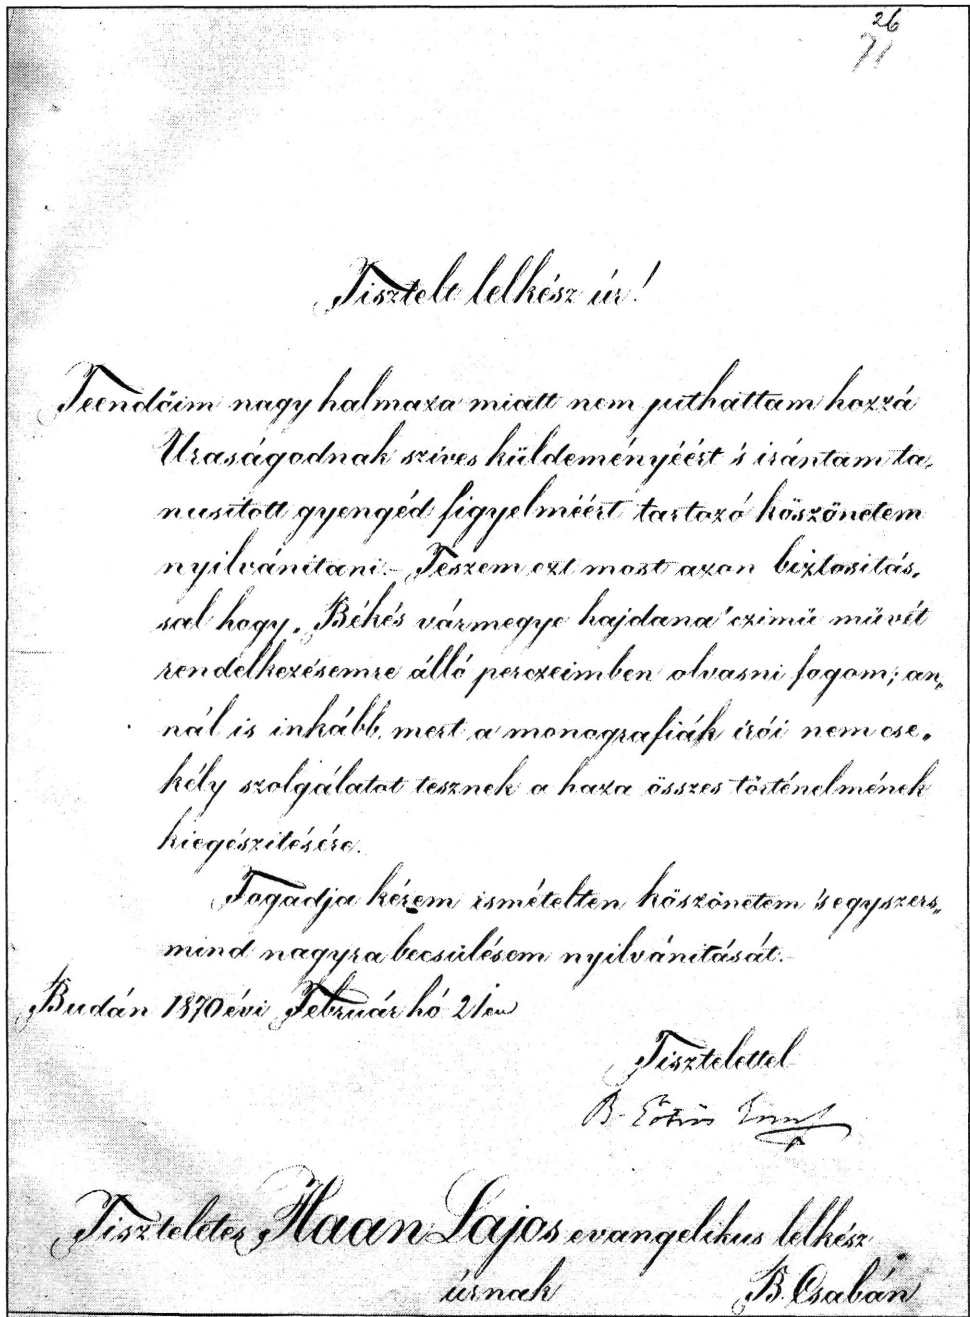 26
71
Tisztelt lelkész úr!
Teendőim nagy halmaza miatt nem juthattam hozzá
Uraságodnak szives küldeményéért 's irántam ta„
nusitott gyengéd figyelméért tartozó köszönetem
nyilvánitani. – Teszem ezt most azon biztositás„
sal hogy „Békés vármegye hajdana" czimű művét
rendelkezésemre álló perczeimben olvasni fogom; an„
nál is inkább, mert a monografiák irói nem cse„
kély szolgálatot tesznek a haza összes történelmének
kiegészitésére.
Fogadja kérem ismételten köszönetem 's egyszers„
mind nagyra becsülésem nyilvánitását. –
Budán 1870 évi Február hó 21én
Tisztelettel
B. Eötvös
Tiszteletes Haan Lajos evangelikus lelkész
úrnak B. Csabán